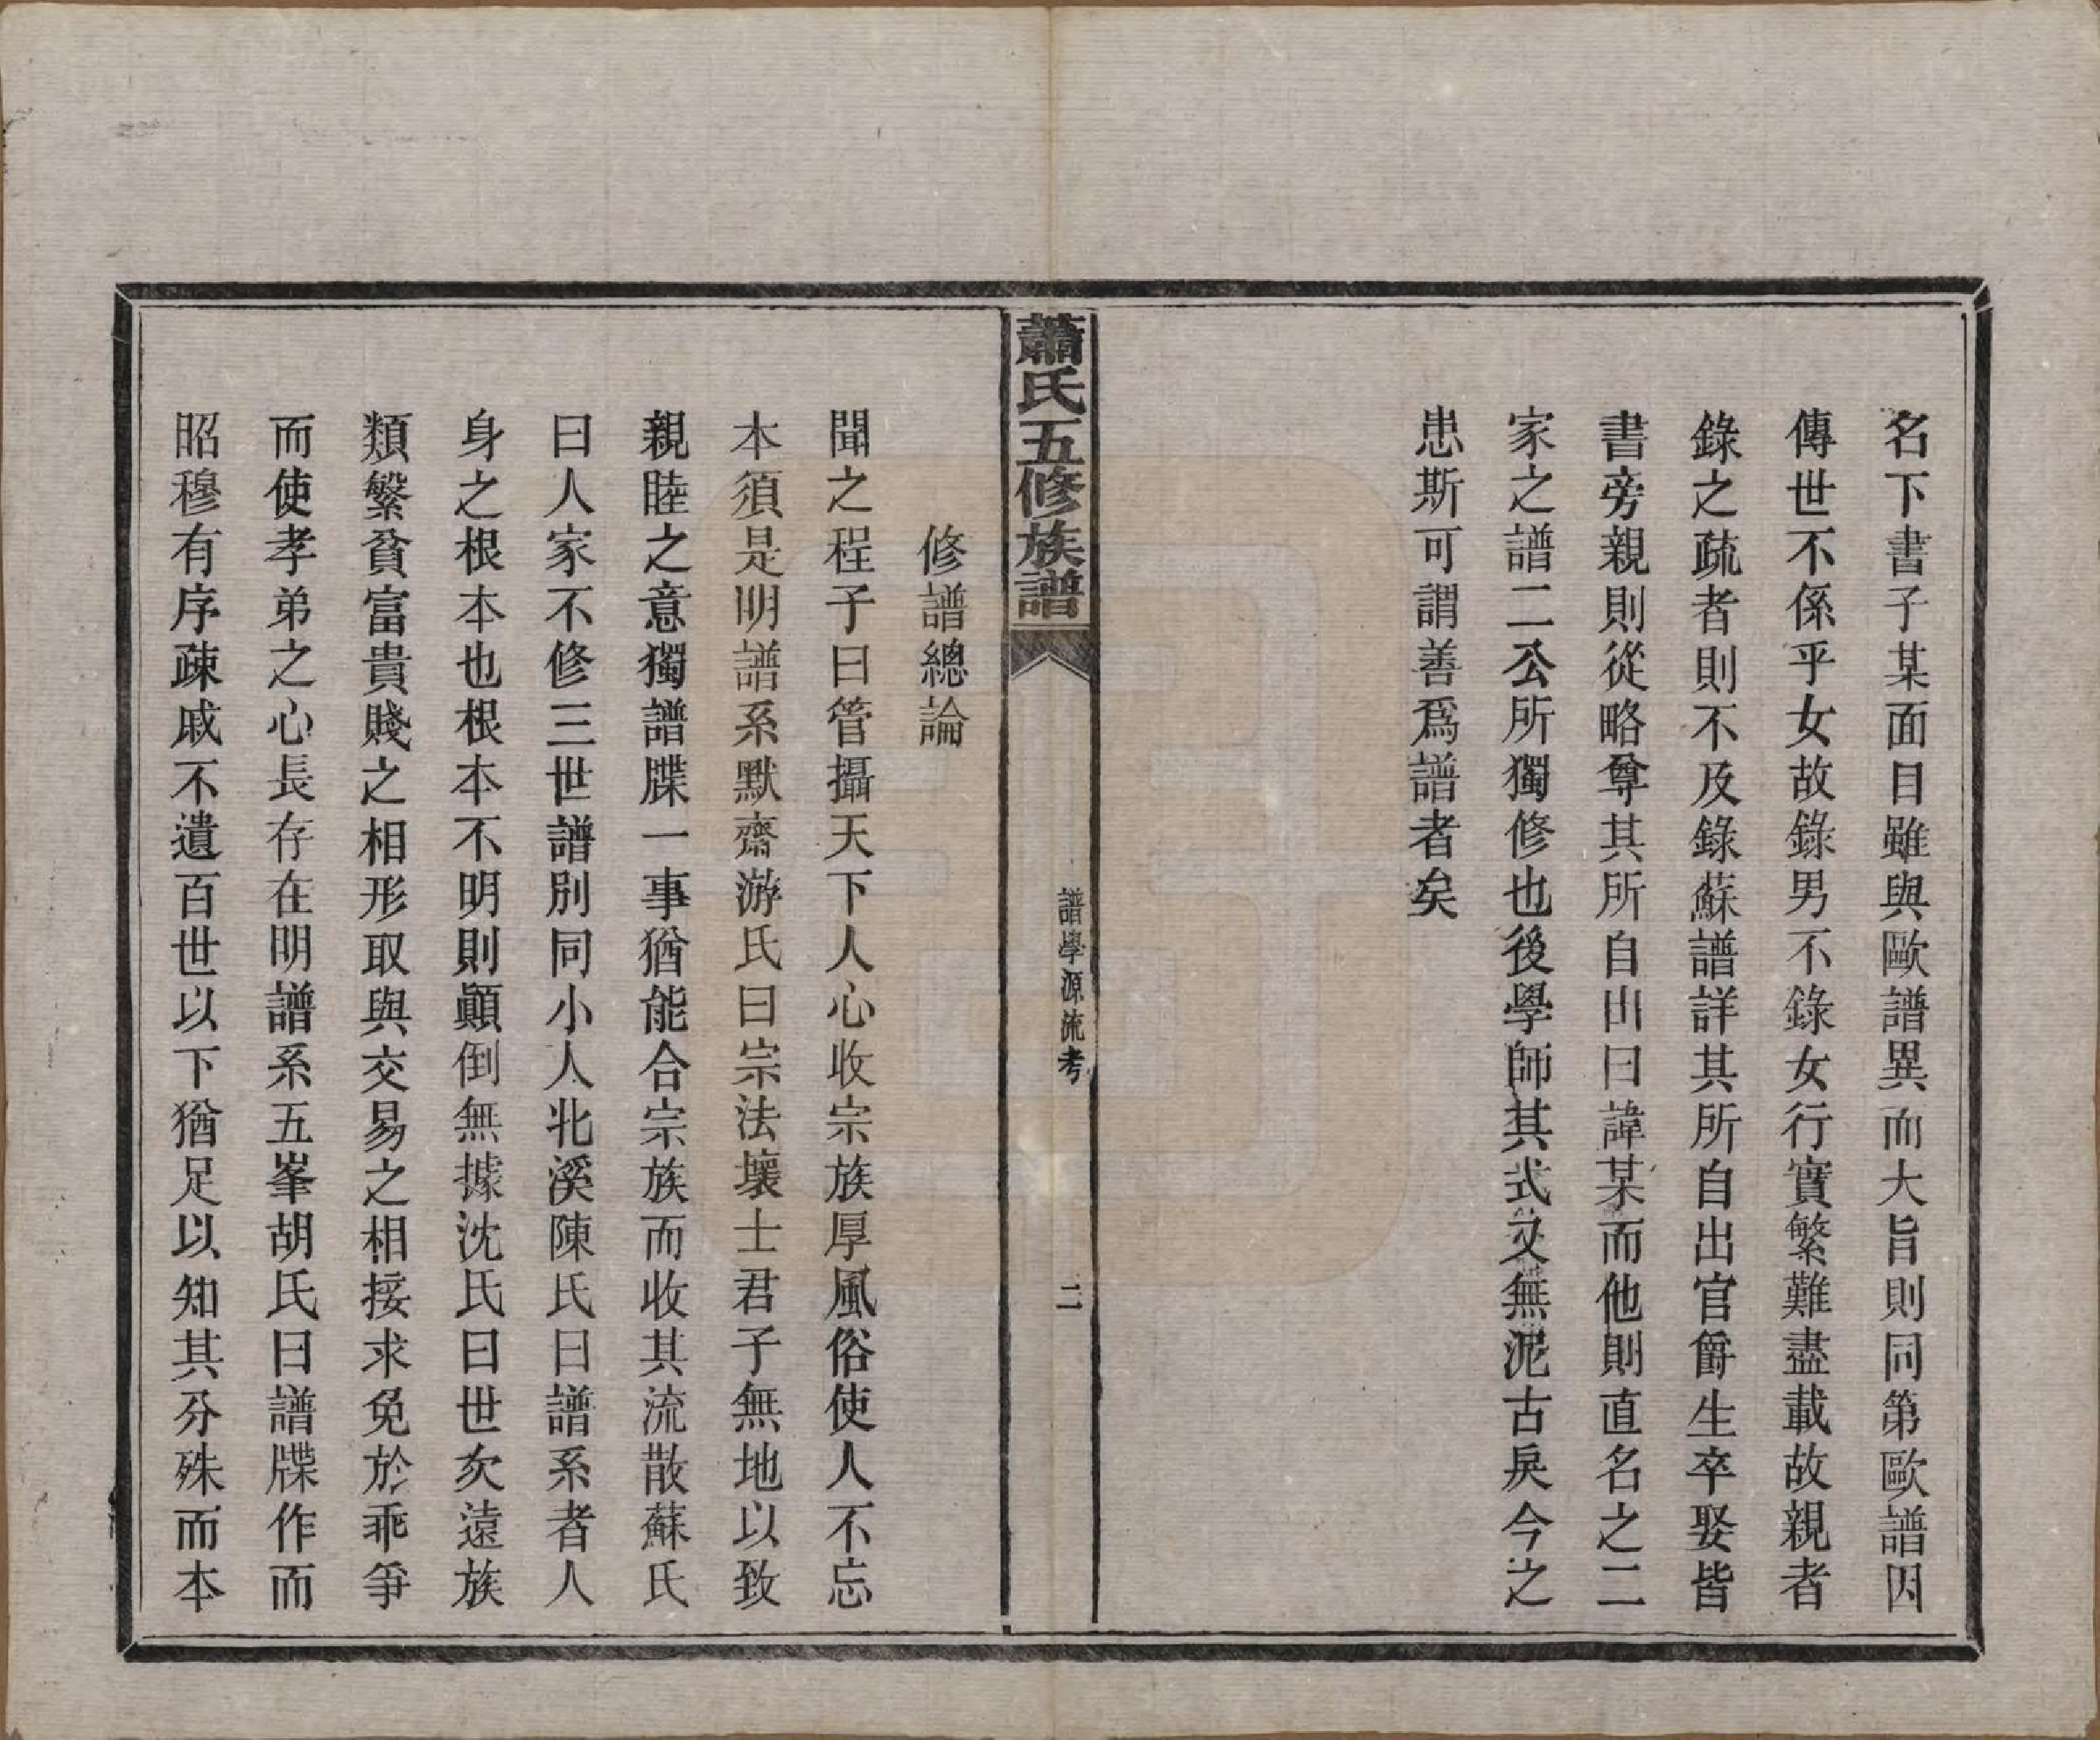 名下書子某面目雖與歐譜異而大旨則同第歐譜因
傳世不係乎女故錄男不錄女行實繁難盡載故親者
錄之疏者則不及錄蘇譜詳其所自出官爵生卒娶皆
書旁親則從略尊其所自出曰諱某而他則直名之二
家之譜二公所獨修也後學師其式又無泥古戾今之
患斯可謂善爲譜者矣
蕭氏五修族譜
譜學源流考
二
修譜總論
聞之程子曰管攝天下人心收宗族厚風俗使人不忘
本須是明譜系默齋游氏曰宗法壞士君子無地以致
親睦之意獨譜牒一事猶能合宗族而收其流散蘇氏
曰人家不修三世譜別同小人北溪陳氏曰譜系者人
身之根本也根本不明則顚倒無據沈氏曰世久遠族
類繁貧富貴賤之相形取與交易之相接求免於乖爭
而使孝弟之心長存在明譜系五峯胡氏曰譜牒作而
昭穆有序疎戚不遺百世以下猶足以知其分殊而本